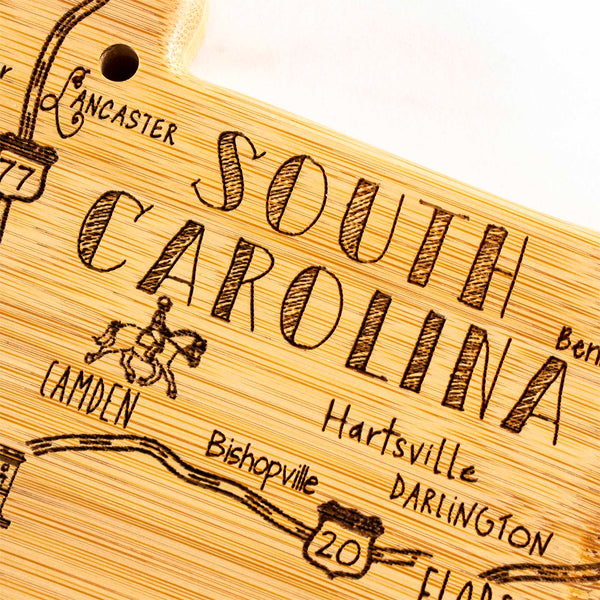 LANCASTER
77
SOUTH
CAROLINA
CAMDEN
Hartsville
Bishopville
DARLiNGTON
20